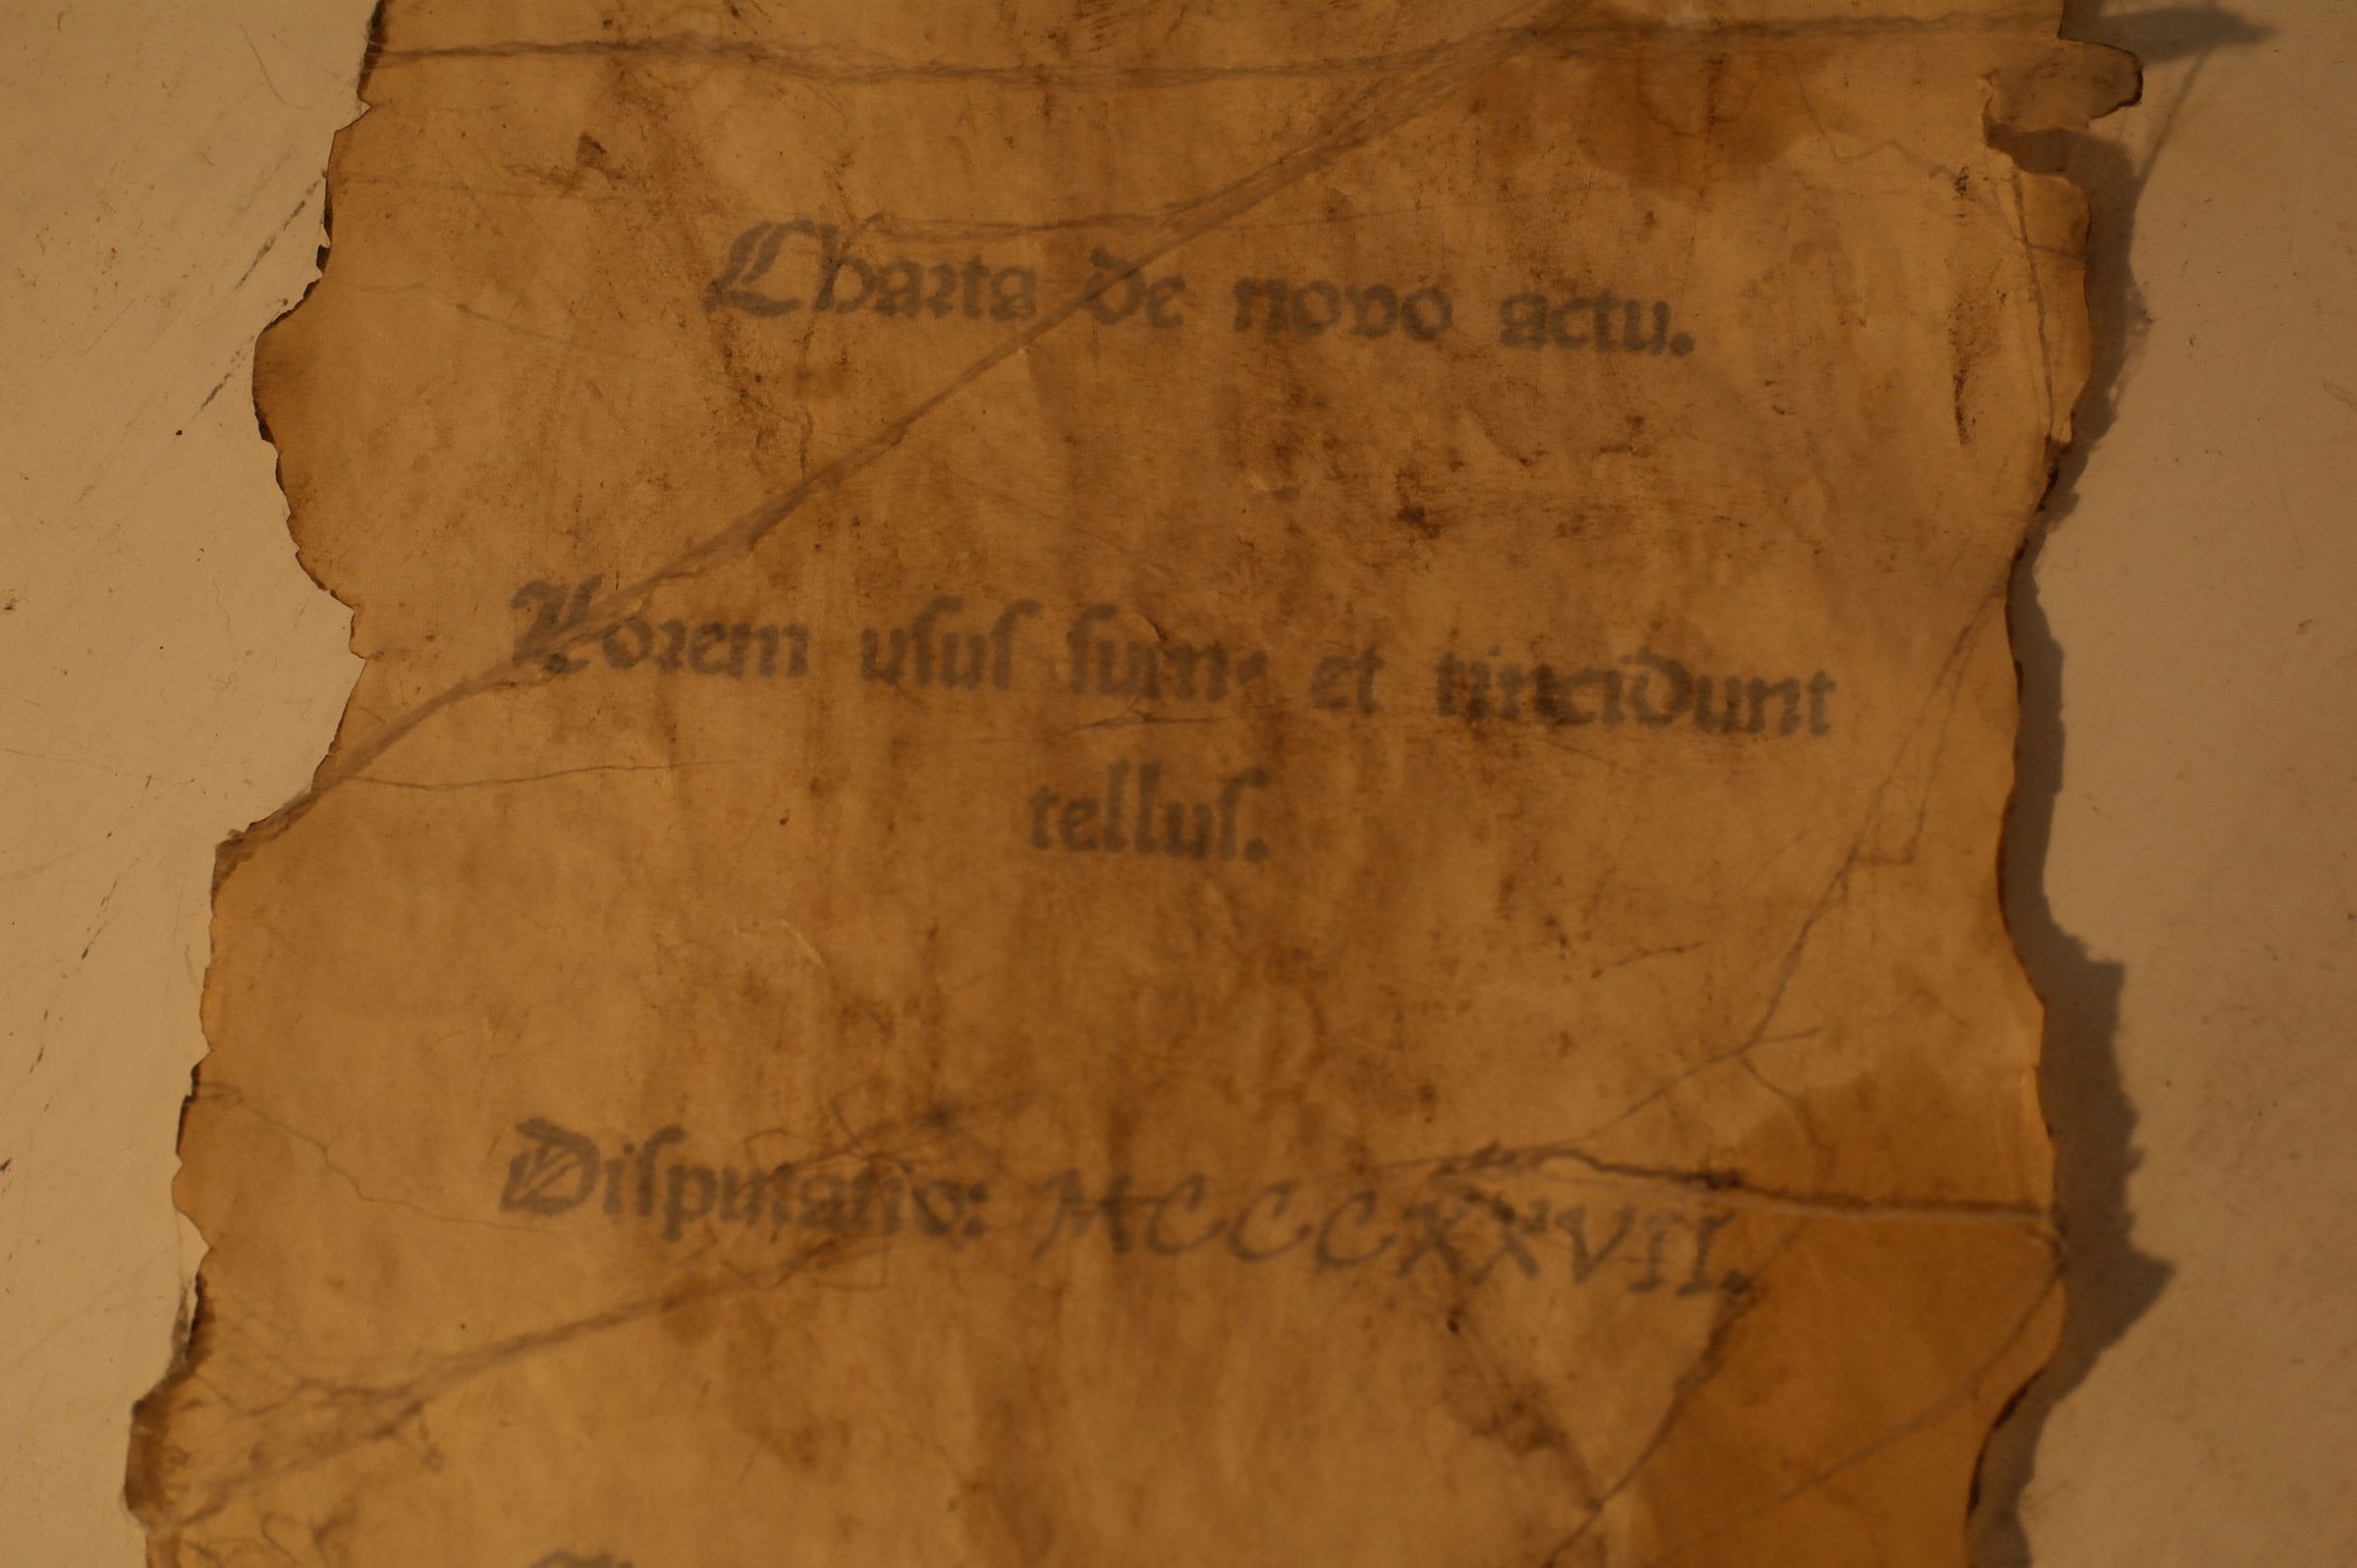 Charta de novo actu.
Lorem uſuſ et tincidunt
telluſ.
Diſputatio: MCCCXXVII.